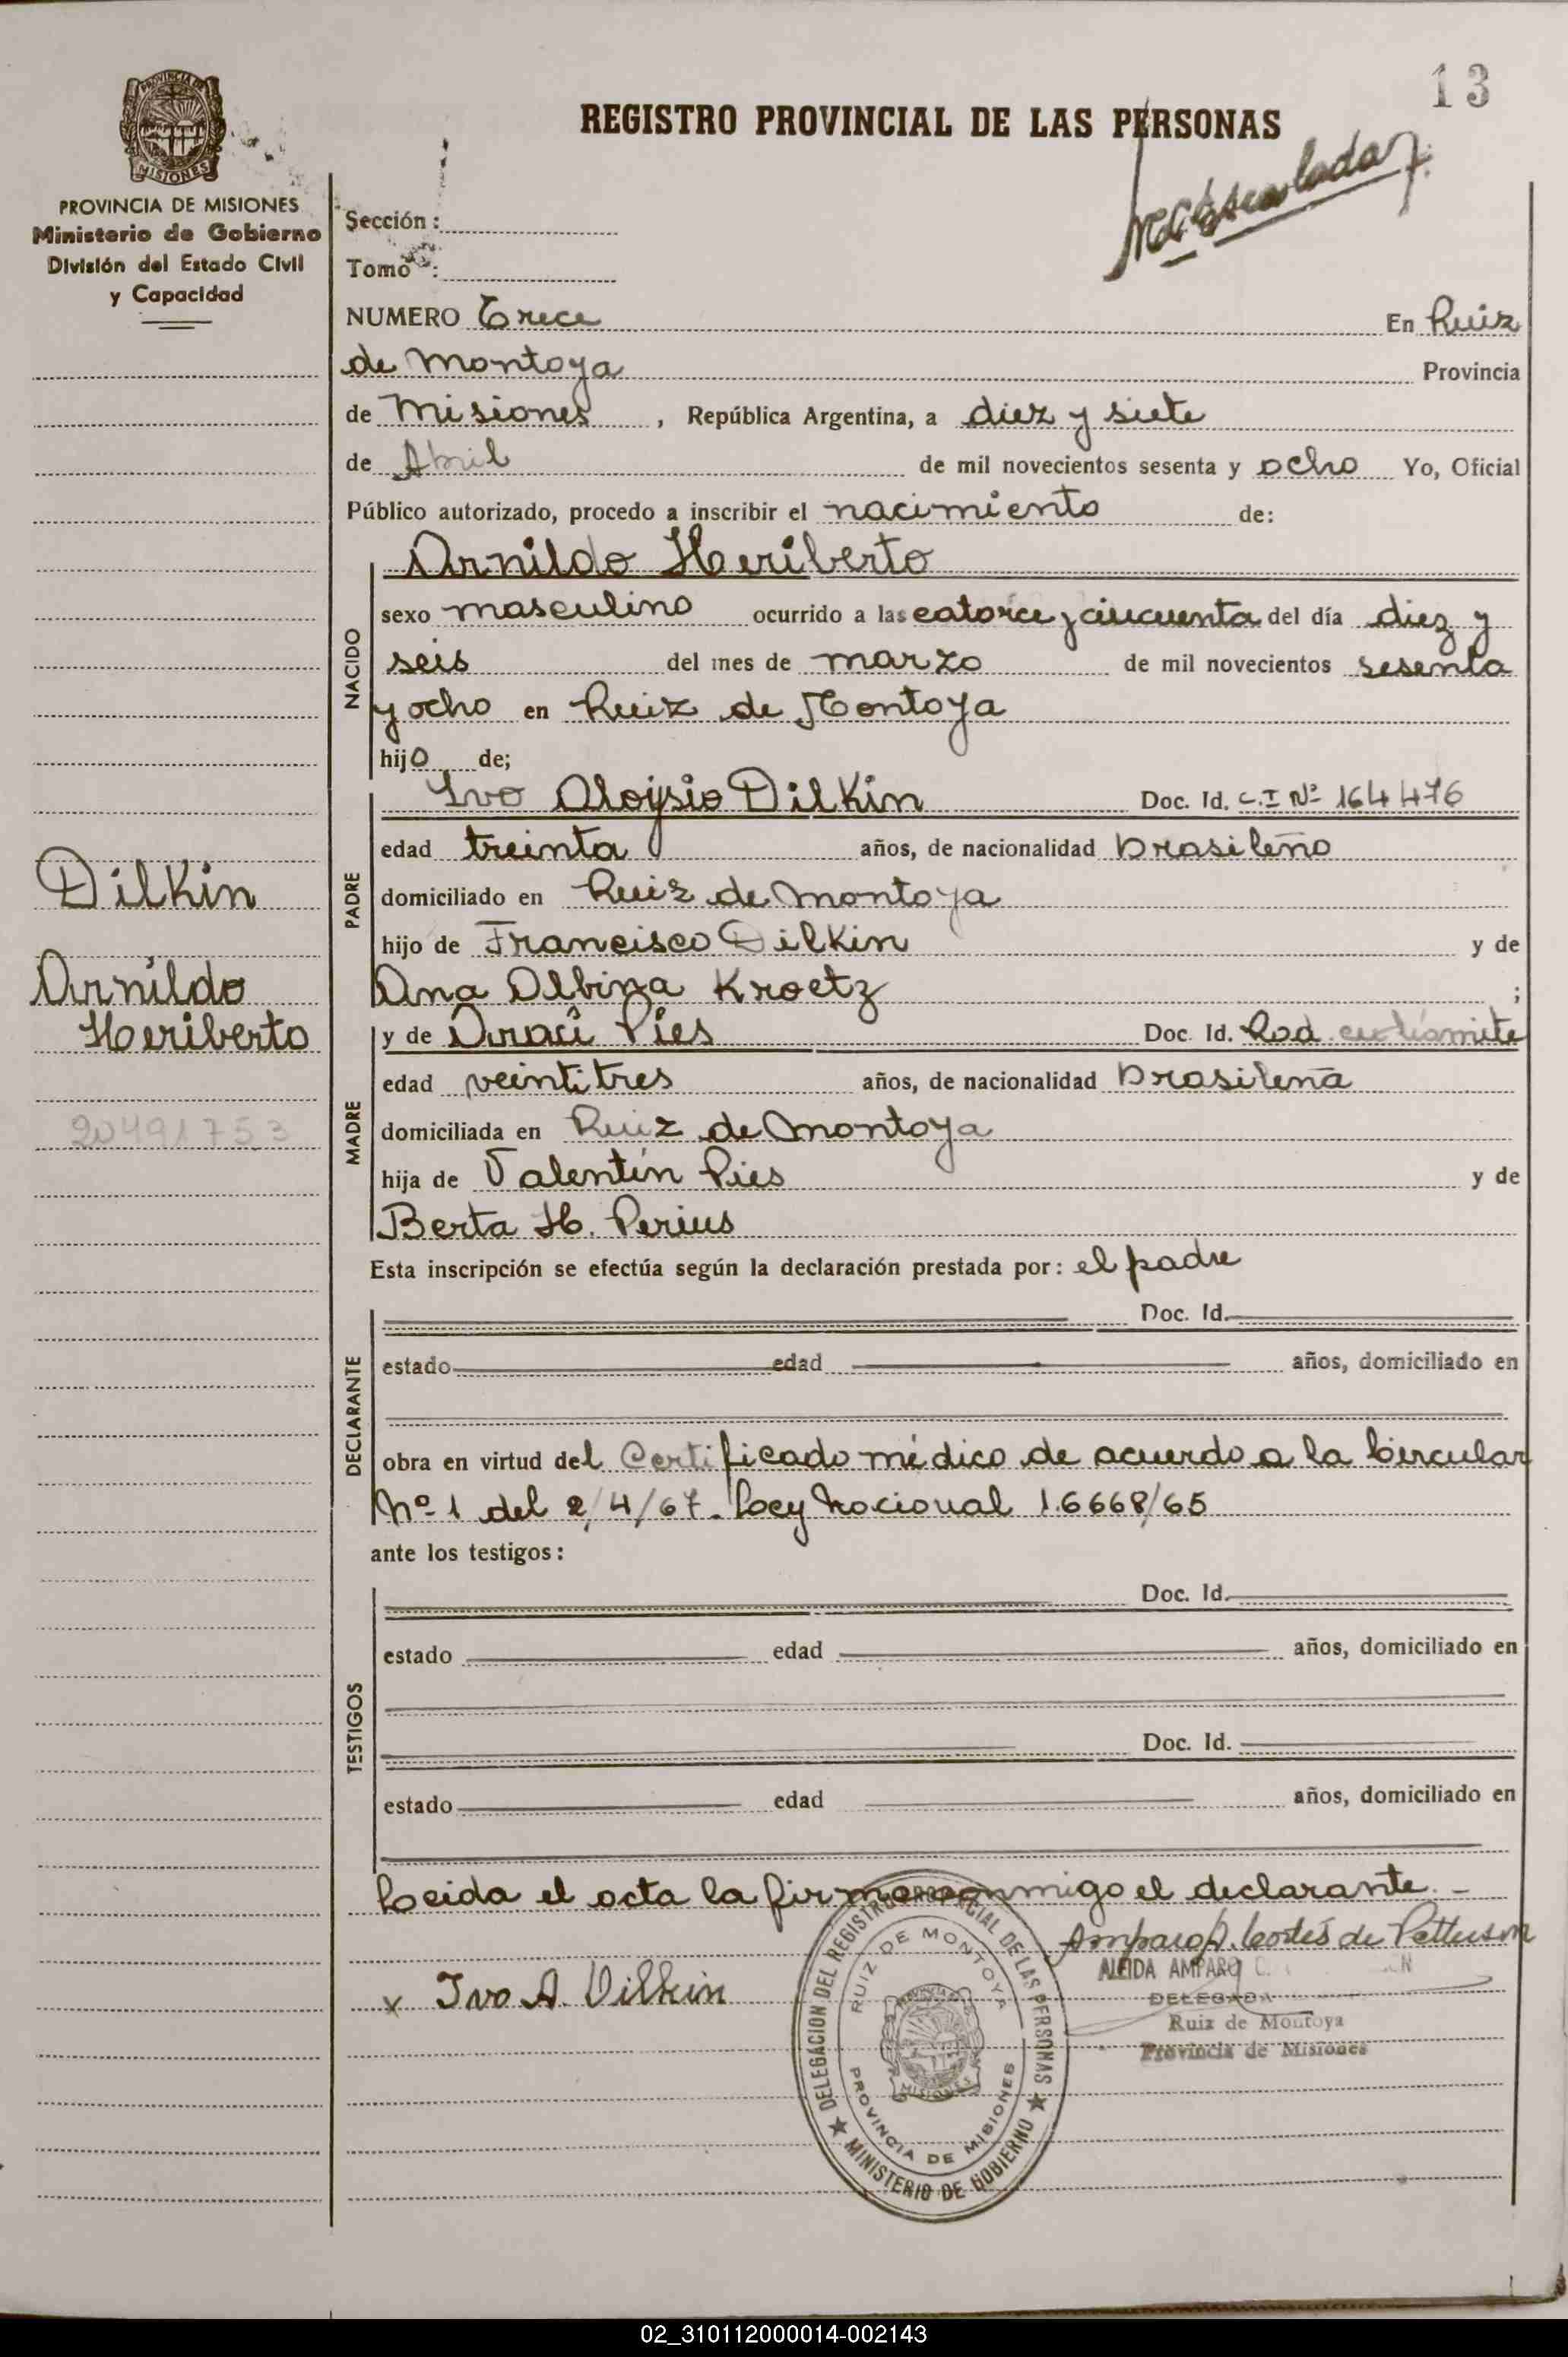 13
REGISTRO PROVINCIAL DE LAS PERSONAS
PROVINCIA DE MISIONES
Ministerio de Gobierno
División del Estado Civil
y Capacidad
Dilkin
Arnildo
Heriberto
20491753
Sección :
Tomo :
NUMERO Trece En Ruiz
de Montoya Provincia
de Misiones , República Argentina, a diez y siete
de Abril de mil novecientos sesenta y ocho Yo, Oficial
Público autorizado, procedo a inscribir el nacimiento de:
NACIDO
Arnildo Heriberto
sexo masculino ocurrido a las catorce y cincuenta del día diez y
seis del mes de marzo de mil novecientos sesenta
y ocho en Ruiz de Montoya
hijo de;
PADRE
Ivo Aloysio Dilkin Doc. Id. C.I Nº 164476
edad treinta años, de nacionalidad brasileño
domiciliado en Ruiz de Montoya
hijo de Francisco Dilkin y de
Ana Albina Kroetz ;
MADRE
y de Araci Pies Doc. Id. Rad. en trámite
edad veintitres años, de nacionalidad brasilena
domiciliada en Ruiz de Montoya
hija de Valentín Pies y de
Berta H. Perius
Esta inscripción se efectúa según la declaración prestada por: el padre
DECLARANTE
Doc. Id.
estado edad años, domiciliado en
obra en virtud del Certificado médico de acuerdo a la Circular
Nº 1 del 2/4/67. Ley Nacional 16668/65
ante los testigos:
TESTIGOS
Doc. Id.
estado edad años, domiciliado en
Doc. Id.
estado edad años, domiciliado en
Leida el acta la firma conmigo el declarante.-
x Ivo A. Dilkin
Amparo P. Cortés de Petterson
ALEIDA AMPARO C.
DELEGADA
Ruiz de Montoya
Provincia de Misiones
DELEGACION DEL REGISTRO PROVINCIAL DE LAS PERSONAS
MINISTERIO DE GOBIERNO
RUIZ DE MONTOYA
PROVINCIA DE MISIONES
02_310112000014-002143